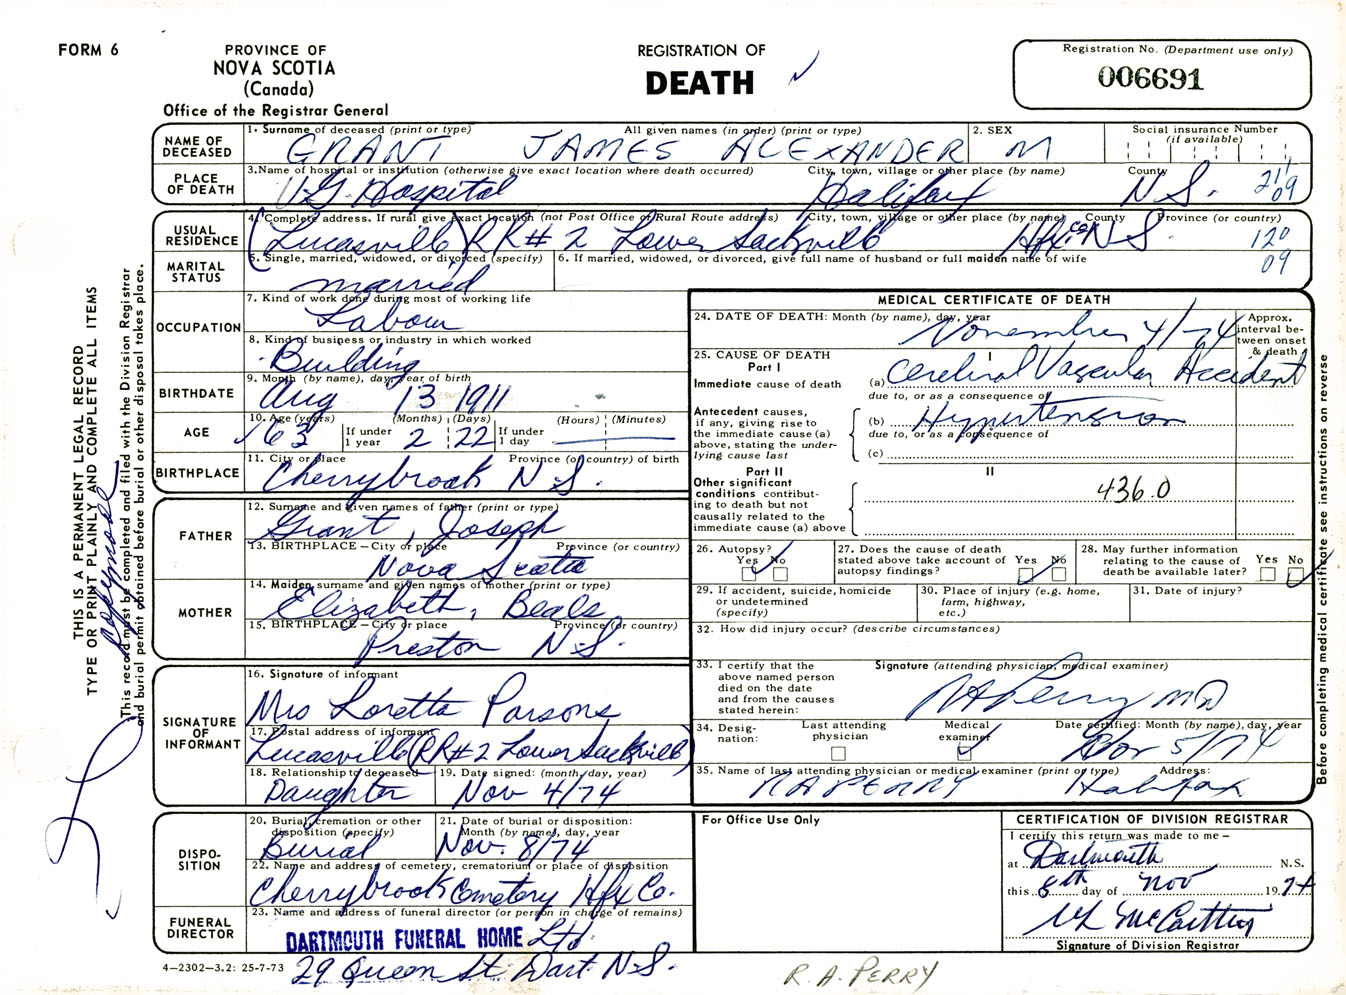 FORM 6
PROVINCE OF
NOVA SCOTIA
(Canada)
Office of the Registrar General
REGISTRATION OF
DEATH
Registration No. (Department use only)
006691
NAME OF DECEASED
1. Surname of deceased (print or type) All given names (in order) (print or type) 2. SEX Social insurance Number (if available)
GRANT JAMES ALEXANDER M
PLACE OF DEATH
3. Name of hospital or institution (otherwise give exact location where death occurred) City, town, village or other place (by name) County
V.G. Hospital Halifax N.S. 211 09
USUAL RESIDENCE
4. Complete address. If rural give exact location (not Post Office or Rural Route address) City, town, village or other place (by name) County Province (or country)
(Lucasville) RR# 2 Lower Sackville Hfx Co N.S. 120 09
MARITAL STATUS
5. Single, married, widowed, or divorced (specify) 6. If married, widowed, or divorced, give full name of husband or full maiden name of wife
married
OCCUPATION
7. Kind of work done during most of working life
Labour
8. Kind of business or industry in which worked
Building
BIRTHDATE
9. Month (by name), day, year of birth
Aug 13 1911
AGE
10. Age (years) If under 1 year (Months) (Days) If under 1 day (Hours) (Minutes)
63 2 22
BIRTHPLACE
11. City or place Province (or country) of birth
Cherrybrook N.S.
FATHER
12. Surname and given names of father (print or type)
Grant, Joseph
13. BIRTHPLACE – City or place Province (or country)
Nova Scotia
MOTHER
14. Maiden surname and given names of mother (print or type)
Elizabeth, Beals
15. BIRTHPLACE – City or place Province (or country)
Preston N.S.
SIGNATURE OF INFORMANT
16. Signature of informant
Mrs Loretta Parsons
17. Postal address of informant
Lucasville (RR#2 Lower Sackville)
18. Relationship to deceased 19. Date signed: (month, day, year)
Daughter Nov 4/74
DISPO-SITION
20. Burial, cremation or other disposition (specify) 21. Date of burial or disposition: Month (by name), day, year
Burial Nov. 8/74
22. Name and address of cemetery, crematorium or place of disposition
Cherrybrook Cemetery Hfx Co.
FUNERAL DIRECTOR
23. Name and address of funeral director (or person in charge of remains)
DARTMOUTH FUNERAL HOME Ltd.
29 Queen St. Dart. N.S.
4–2302–3.2: 25-7-73
MEDICAL CERTIFICATE OF DEATH
24. DATE OF DEATH: Month (by name), day, year
November 4/74
Approx. interval between onset & death
25. CAUSE OF DEATH
Part I I
Immediate cause of death (a) Cerebral Vascular Accident
due to, or as a consequence of
Antecedent causes, if any, giving rise to the immediate cause (a) above, stating the underlying cause last
(b) Hypertension
due to, or as a consequence of
(c)
Part II II
Other significant conditions contributing to death but not causally related to the immediate cause (a) above
436.0
26. Autopsy? Yes No
27. Does the cause of death stated above take account of autopsy findings? Yes No
28. May further information relating to the cause of death be available later? Yes No
29. If accident, suicide, homicide or undetermined (specify)
30. Place of injury (e.g. home, farm, highway, etc.)
31. Date of injury?
32. How did injury occur? (describe circumstances)
33. I certify that the above named person died on the date and from the causes stated herein:
Signature (attending physician, medical examiner)
RAPerry MD
34. Designation: Last attending physician Medical examiner Date certified: Month (by name), day, year
Nov 5/74
35. Name of last attending physician or medical examiner (print or type) Address:
RA PERRY Halifax
For Office Use Only
CERTIFICATION OF DIVISION REGISTRAR
I certify this return was made to me –
at Dartmouth N.S.
this 8th day of Nov 1974
McCarthy
Signature of Division Registrar
R. A. PERRY
THIS IS A PERMANENT LEGAL RECORD
TYPE OR PRINT PLAINLY AND COMPLETE ALL ITEMS
This record must be completed and filed with the Division Registrar
and burial permit obtained before burial or other disposal takes place.
Before completing medical certificate see instructions on reverse